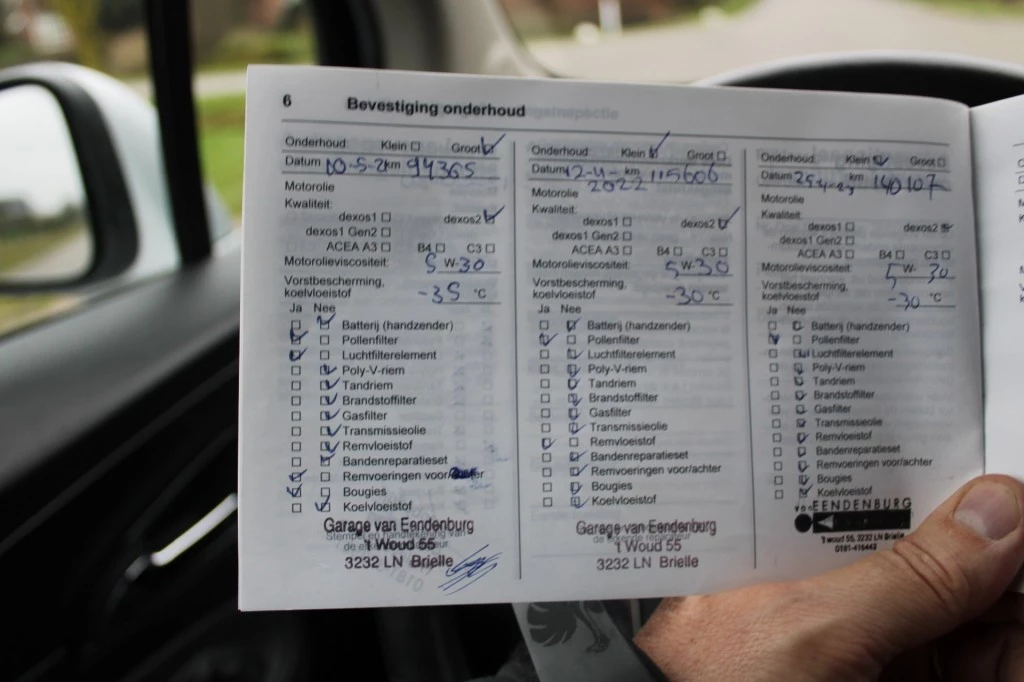 6 Bevestiging onderhoud
Onderhoud Klein Groot
Datum 10-5-21 km 94365
Motorolie
Kwaliteit:
dexos1 dexos2
dexos1 Gen2
ACEA A3 B4 C3
Motorolieviscositeit: 5 W-30
Vorstbescherming,
koelvloeistof -35 °C
Ja Nee
Batterij (handzender)
Pollenfilter
Luchtfilterelement
Poly-V-riem
Tandriem
Brandstoffilter
Gasfilter
Transmissieolie
Remvloeistof
Bandenreparatieset
Remvoeringen voor/
Bougies
Koelvloeistof
Garage van Eendenburg
't Woud 55
3232 LN Brielle
Onderhoud: Klein Groot
Datum 12-4- km 115606
2022
Motorolie
Kwaliteit:
dexos1 dexos2
dexos1 Gen2
ACEA A3 B4 C3
Motorolieviscositeit: 5 W-30
Vorstbescherming,
koelvloeistof -30 °C
Ja Nee
Batterij (handzender)
Pollenfilter
Luchtfilterelement
Poly-V-riem
Tandriem
Brandstoffilter
Gasfilter
Transmissieolie
Remvloeistof
Bandenreparatieset
Remvoeringen voor/achter
Bougies
Koelvloeistof
Garage van Eendenburg
't Woud 55
3232 LN Brielle
Onderhoud: Klein Groot
Datum km 140107
Motorolie
Kwaliteit:
dexos1 dexos2
dexos1 Gen2
ACEA A3 B4 C3
Motorolieviscositeit: 5 W- 30
Vorstbescherming,
koelvloeistof -30 °C
Ja Nee
Batterij (handzender)
Pollenfilter
Luchtfilterelement
Poly-V-riem
Tandriem
Brandstoffilter
Gasfilter
Transmissieolie
Remvloeistof
Bandenreparatieset
Remvoeringen voor/achter
Bougies
Koelvloeistof
van EENDENBURG
't woud 55, 3232 LN Brielle